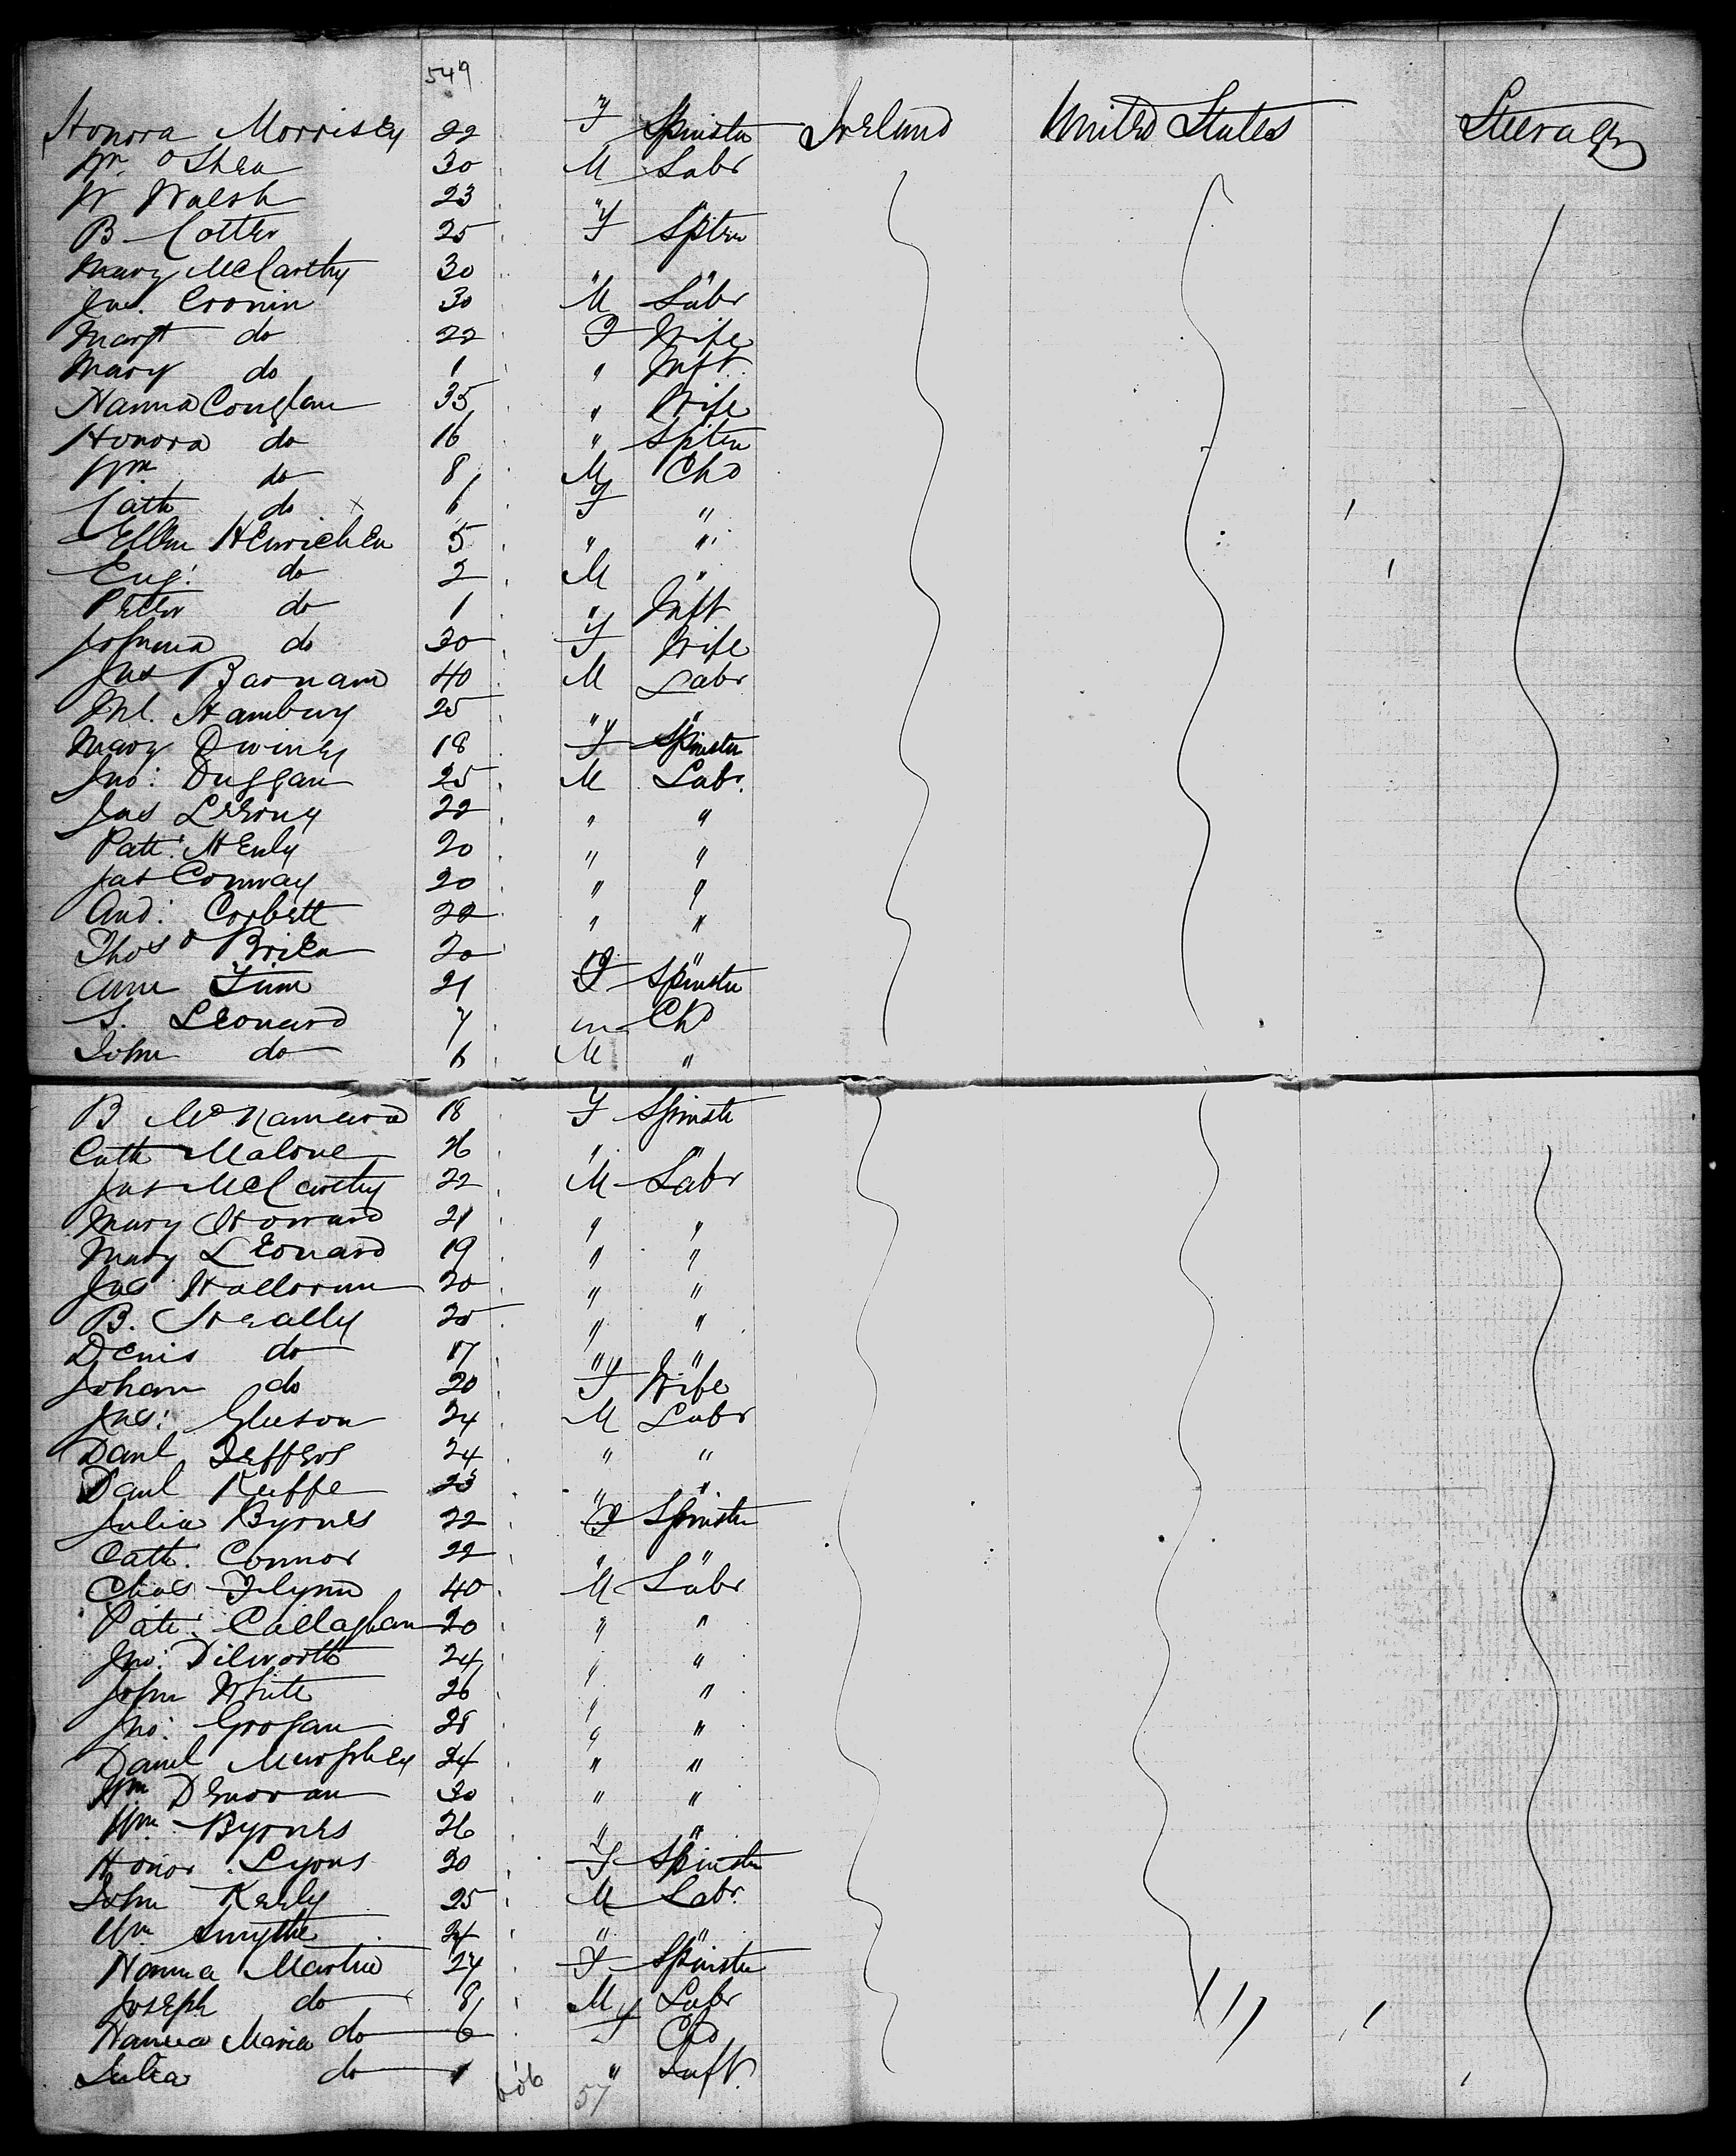 549
Honora Morrisey 22 F Spinster Ireland United States Steerage
Wm O'Shea 30 M Labr
W Walsh 23 " "
B Cotter 25 F Spstr
Mary McCarthy 30 " "
Jas. Cronin 30 M Labr
Margt do 22 F Wife
Mary do 1 " Inft
Hanna Conglan 35 " Wife
Honora do 16 " Spstr
Wm do 8 M Chd
Cath do 6 F "
Ellen 5 " "
Eug: do 2 M "
Peter do 1 " Inft
Johnna do 30 F Wife
Jas Barnam 40 M Labr
Ml. Hambury 25 " "
Mary Dwiney 18 F Spinster
Jno: Duggan 25 M Labr.
Jas 22 " "
Patt: Henly 20 " "
Jas Conway 20 " "
And: Corbett 22 " "
Thos O'Brien 20 " "
Anne Finn 21 F Spinster
S. Leonard 7 m Chd
John do 6 M "
B McNamara 18 F Spinstr
Cath Malone 26 " "
Jas McCarthy 22 M Labr
Mary Howard 21 " "
Mary Leonard 19 " "
Jas Halloran 20 " "
B. Heally 25 " "
Denis do 17 " "
Johan do 20 F Wife
Jas: Gleeson 24 M Labr
Danl Jeffers 24 " "
Danl Keeffe 23 " "
Julia Byrnes 22 F Spinster
Cath. Connor 22 " "
Chas Flynn 40 M Labr
Patt: Callaghan 20 " "
Jno: Dilworth 24 " "
John White 26 " "
Jno: Grogan 28 " "
Daniel Murphey 24 " "
Wm Denovan 30 " "
Wm Byrnes 26 " "
Honor Lyons 20 F Spinster
John Kerly 25 M Labr.
Wm Smythe 24 " "
Hanna Martin 27 F Spinster
Joseph do 8 M Labr
Hanna Maria do 6 F Chd
Julia do 1 " Inft.
606 57